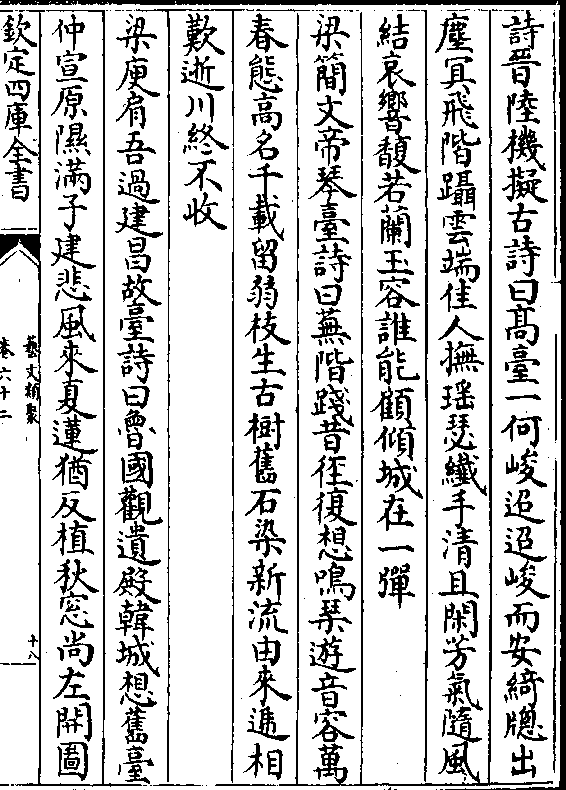 詩晉陸機擬古詩曰髙臺一何峻迢迢峻而安綺牕出
塵冥飛階躡雲端佳人撫瑶瑟纎手清且閑芳氣隨風
結哀響馥若蘭玉容誰能顧傾城在一彈
梁簡文帝琴臺詩曰蕪階踐昔徑復想鳴琴遊音容萬
春態高名千載留弱枝生古樹舊石染新流由來遞相
歎逝川終不收
梁庾肩吾過建昌故臺詩曰魯國觀遺殿韓城想舊臺
仲宣原隰滿子建悲風來夏蓮猶反植秋窓尚左開圖
欽定四庫全書
藝文類聚
卷六十二
十八